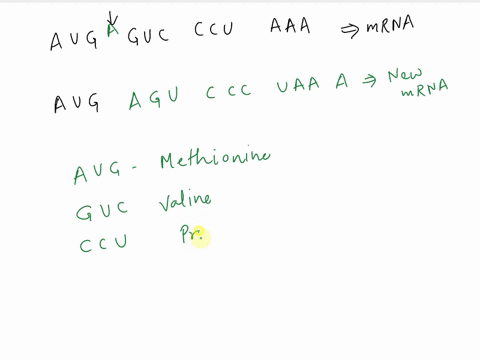 AUG A GUC CCU AAA ⇒ mRNA
AUG AGU CCC UAA A ⇒ New mRNA
AUG - Methionine
GUC Valine
CCU Pr